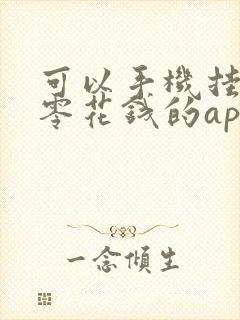 可以手機挂
零花錢的ap
一念傾生